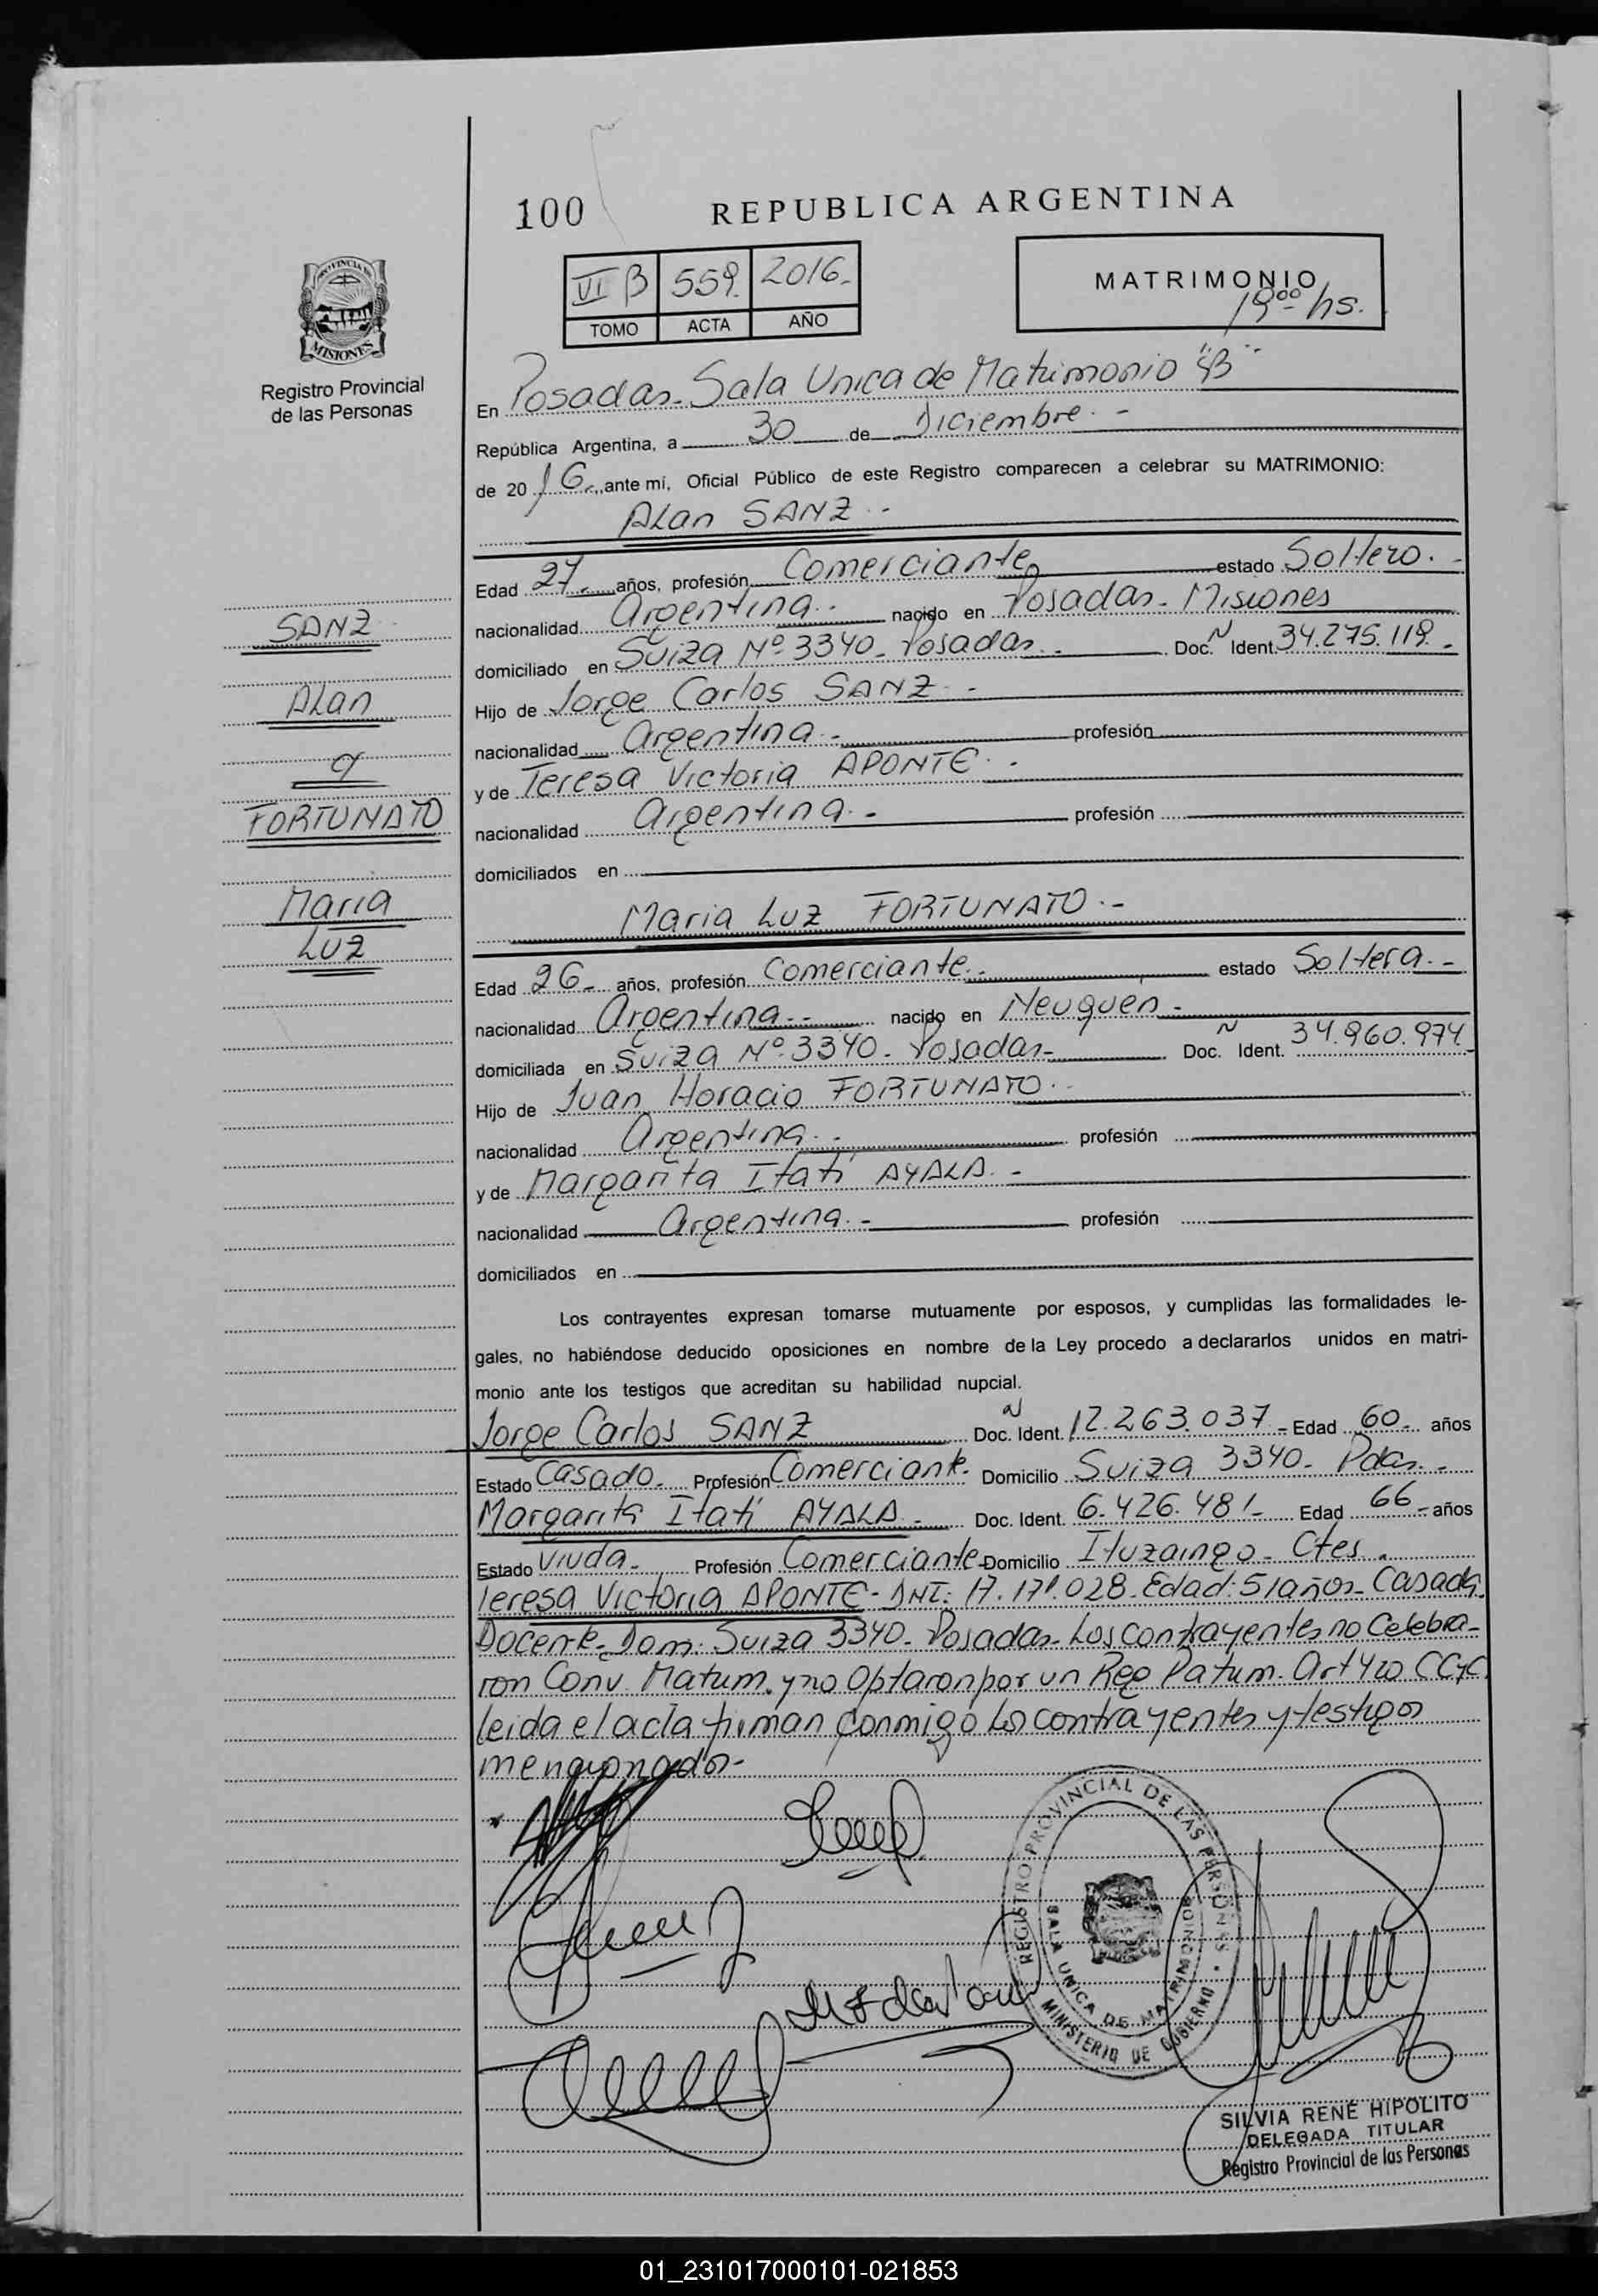 100
REPUBLICA ARGENTINA
VI B 559. 2016.-
TOMO ACTA AÑO
MATRIMONIO
19⁰⁰ hs.
PROVINCIA DE
MISIONES
Registro Provincial
de las Personas
En Posadas.- Sala Unica de Matrimonio "B"
República Argentina, a 30 de Diciembre.-
de 2016.-, ante mí, Oficial Público de este Registro comparecen a celebrar su MATRIMONIO:
Alan SANZ.-
Edad 27.- años, profesión Comerciante estado Soltero.-
nacionalidad Argentina.- nacido en Posadas.- Misiones
domiciliado en Suiza Nº 3340.- Posadas.- Doc. N Ident. 34.275.119.-
Hijo de Jorge Carlos SANZ.-
nacionalidad Argentina.- profesión
y de Teresa Victoria APONTE.-
nacionalidad Argentina.- profesión
domiciliados en
SANZ
Alan
c/
FORTUNATO
Maria
Luz
Maria Luz FORTUNATO.-
Edad 26.- años, profesión Comerciante.- estado Soltera.-
nacionalidad Argentina.- nacido en Neuquén.-
domiciliada en Suiza Nº 3340.- Posadas.- Doc. N Ident. 34.960.974.-
Hijo de Juan Horacio FORTUNATO.-
nacionalidad Argentina.- profesión
y de Margarita Itatí AYALA.-
nacionalidad Argentina.- profesión
domiciliados en
Los contrayentes expresan tomarse mutuamente por esposos, y cumplidas las formalidades le-
gales, no habiéndose deducido oposiciones en nombre de la Ley procedo a declararlos unidos en matri-
monio ante los testigos que acreditan su habilidad nupcial.
Jorge Carlos SANZ Doc. N Ident. 12.263.037.- Edad 60.- años
Estado Casado.- Profesión Comerciante.- Domicilio Suiza 3340.- Pdas.-
Margarita Itatí AYALA.- Doc. Ident. 6.426.481.- Edad 66.- años
Estado Viuda.- Profesión Comerciante Domicilio Ituzaingo.- Ctes.
Teresa Victoria APONTE- DNI: 17.171.028.- Edad: 51 años.- Casada.
Docente.- Dom: Suiza 3340.- Posadas.- Los contrayentes no Celebra-
ron Conv. Matrim. y no Optaron por un Reg Patrim. Art 420 CCyC.
leida el acta firman conmigo los contrayentes y testigos
mencionados.-
REGISTRO PROVINCIAL DE LAS PERSONAS
SALA UNICA DE MATRIMONIOS
MINISTERIO DE GOBIERNO
SILVIA RENÉ HIPOLITO
DELEGADA TITULAR
Registro Provincial de las Personas
01_231017000101-021853